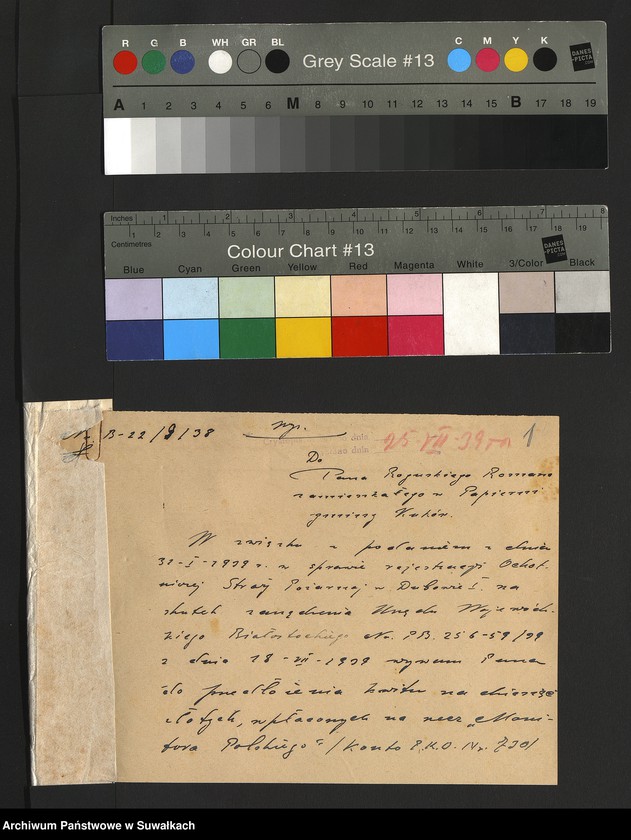 R G B WH GR BL Grey Scale #13 C M Y K DANES-PICTA.COM
A 1 2 3 4 5 6 M 8 9 10 11 12 13 14 15 B 17 18 19
Inches 1 2 3 4 5 6 7 8
Centimetres 1 2 3 4 5 6 7 8 9 10 11 12 13 14 15 16 17 18 19
Colour Chart #13 DANES-PICTA.COM
Blue Cyan Green Yellow Red Magenta White 3/Color Black
B-22/9/38 wyp. dnia 25-VII-39 1
dnia
Do
Pana Roguskiego Romana
zamieszkałego w Papierni
gminy Kuków.
W związku z podaniem z dnia
31-I-1939 r. w sprawie rejestracji Ochot-
niczej Straży Pożarnej w Dubowie I. na
skutek zarządzenia Urzędu Wojewódz-
kiego Białostockiego Nr. PB. 256-59/39
z dnia 18-VII-1939 wzywam Pana
do przedłożenia kwitu na dziesięć
złotych, wpłaconych na rzecz „Moni-
tora Polskiego" /Konto P.K.O. Nr. 730/
Archiwum Państwowe w Suwałkach